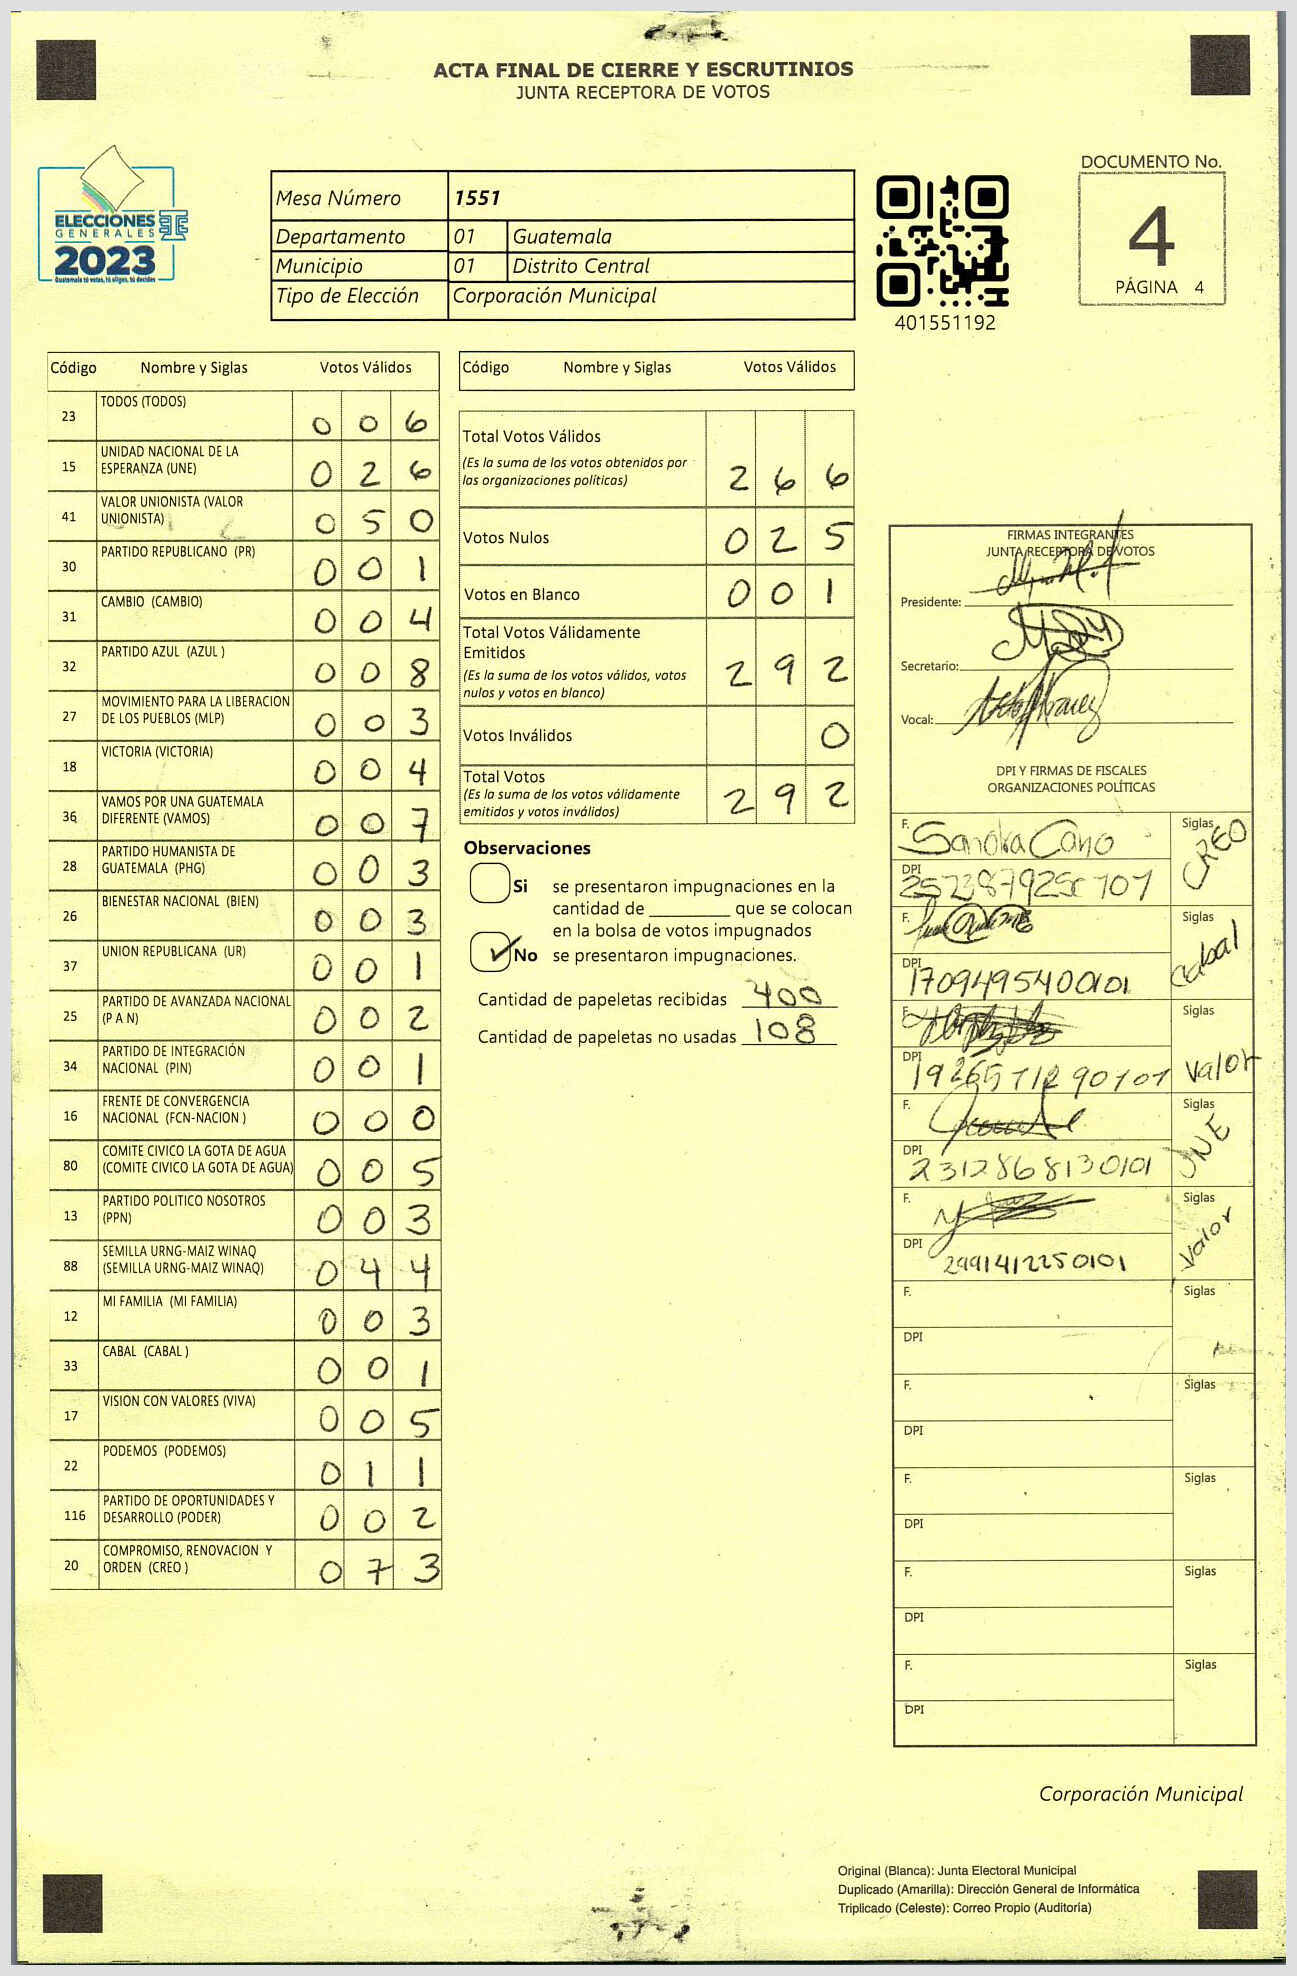 ACTA FINAL DE CIERRE Y ESCRUTINIOS
JUNTA RECEPTORA DE VOTOS
ELECCIONES
GENERALES
2023
Guatemala tú votas, tú eliges, tú decides
Mesa Número 1551
Departamento 01 Guatemala
Municipio 01 Distrito Central
Tipo de Elección Corporación Municipal
401551192
DOCUMENTO No.
4
PÁGINA 4
Código Nombre y Siglas Votos Válidos
23 TODOS (TODOS) 0 0 6
15 UNIDAD NACIONAL DE LA
ESPERANZA (UNE) 0 2 6
41 VALOR UNIONISTA (VALOR
UNIONISTA) 0 5 0
30 PARTIDO REPUBLICANO (PR) 0 0 1
31 CAMBIO (CAMBIO) 0 0 4
32 PARTIDO AZUL (AZUL ) 0 0 8
27 MOVIMIENTO PARA LA LIBERACION
DE LOS PUEBLOS (MLP) 0 0 3
18 VICTORIA (VICTORIA) 0 0 4
36 VAMOS POR UNA GUATEMALA
DIFERENTE (VAMOS) 0 0 7
28 PARTIDO HUMANISTA DE
GUATEMALA (PHG) 0 0 3
26 BIENESTAR NACIONAL (BIEN) 0 0 3
37 UNION REPUBLICANA (UR) 0 0 1
25 PARTIDO DE AVANZADA NACIONAL
(P A N) 0 0 2
34 PARTIDO DE INTEGRACIÓN
NACIONAL (PIN) 0 0 1
16 FRENTE DE CONVERGENCIA
NACIONAL (FCN-NACION ) 0 0 0
80 COMITE CIVICO LA GOTA DE AGUA
(COMITE CIVICO LA GOTA DE AGUA) 0 0 5
13 PARTIDO POLITICO NOSOTROS
(PPN) 0 0 3
88 SEMILLA URNG-MAIZ WINAQ
(SEMILLA URNG-MAIZ WINAQ) 0 4 4
12 MI FAMILIA (MI FAMILIA) 0 0 3
33 CABAL (CABAL ) 0 0 1
17 VISION CON VALORES (VIVA) 0 0 5
22 PODEMOS (PODEMOS) 0 1 1
116 PARTIDO DE OPORTUNIDADES Y
DESARROLLO (PODER) 0 0 2
20 COMPROMISO, RENOVACION Y
ORDEN (CREO ) 0 7 3
Código Nombre y Siglas Votos Válidos
Total Votos Válidos
(Es la suma de los votos obtenidos por
las organizaciones políticas) 2 6 6
Votos Nulos 0 2 5
Votos en Blanco 0 0 1
Total Votos Válidamente
Emitidos
(Es la suma de los votos válidos, votos
nulos y votos en blanco) 2 9 2
Votos Inválidos 0
Total Votos
(Es la suma de los votos válidamente
emitidos y votos inválidos) 2 9 2
Observaciones
Si se presentaron impugnaciones en la
cantidad de ________ que se colocan
en la bolsa de votos impugnados
No se presentaron impugnaciones.
Cantidad de papeletas recibidas 400
Cantidad de papeletas no usadas 108
FIRMAS INTEGRANTES
JUNTA RECEPTORA DE VOTOS
Presidente:
Secretario:
Vocal:
DPI Y FIRMAS DE FISCALES
ORGANIZACIONES POLÍTICAS
F. Sandra Cano Siglas CREO
DPI
F. Siglas Cabal
DPI 1709495400101
F. Siglas Valor
DPI
F. Siglas UNE
DPI 2312868130101
F. Siglas Valor
DPI 2991412250101
F. Siglas
DPI
F. Siglas
DPI
F. Siglas
DPI
F. Siglas
DPI
F. Siglas
DPI
Corporación Municipal
Original (Blanca): Junta Electoral Municipal
Duplicado (Amarilla): Dirección General de Informática
Triplicado (Celeste): Correo Propio (Auditoría)